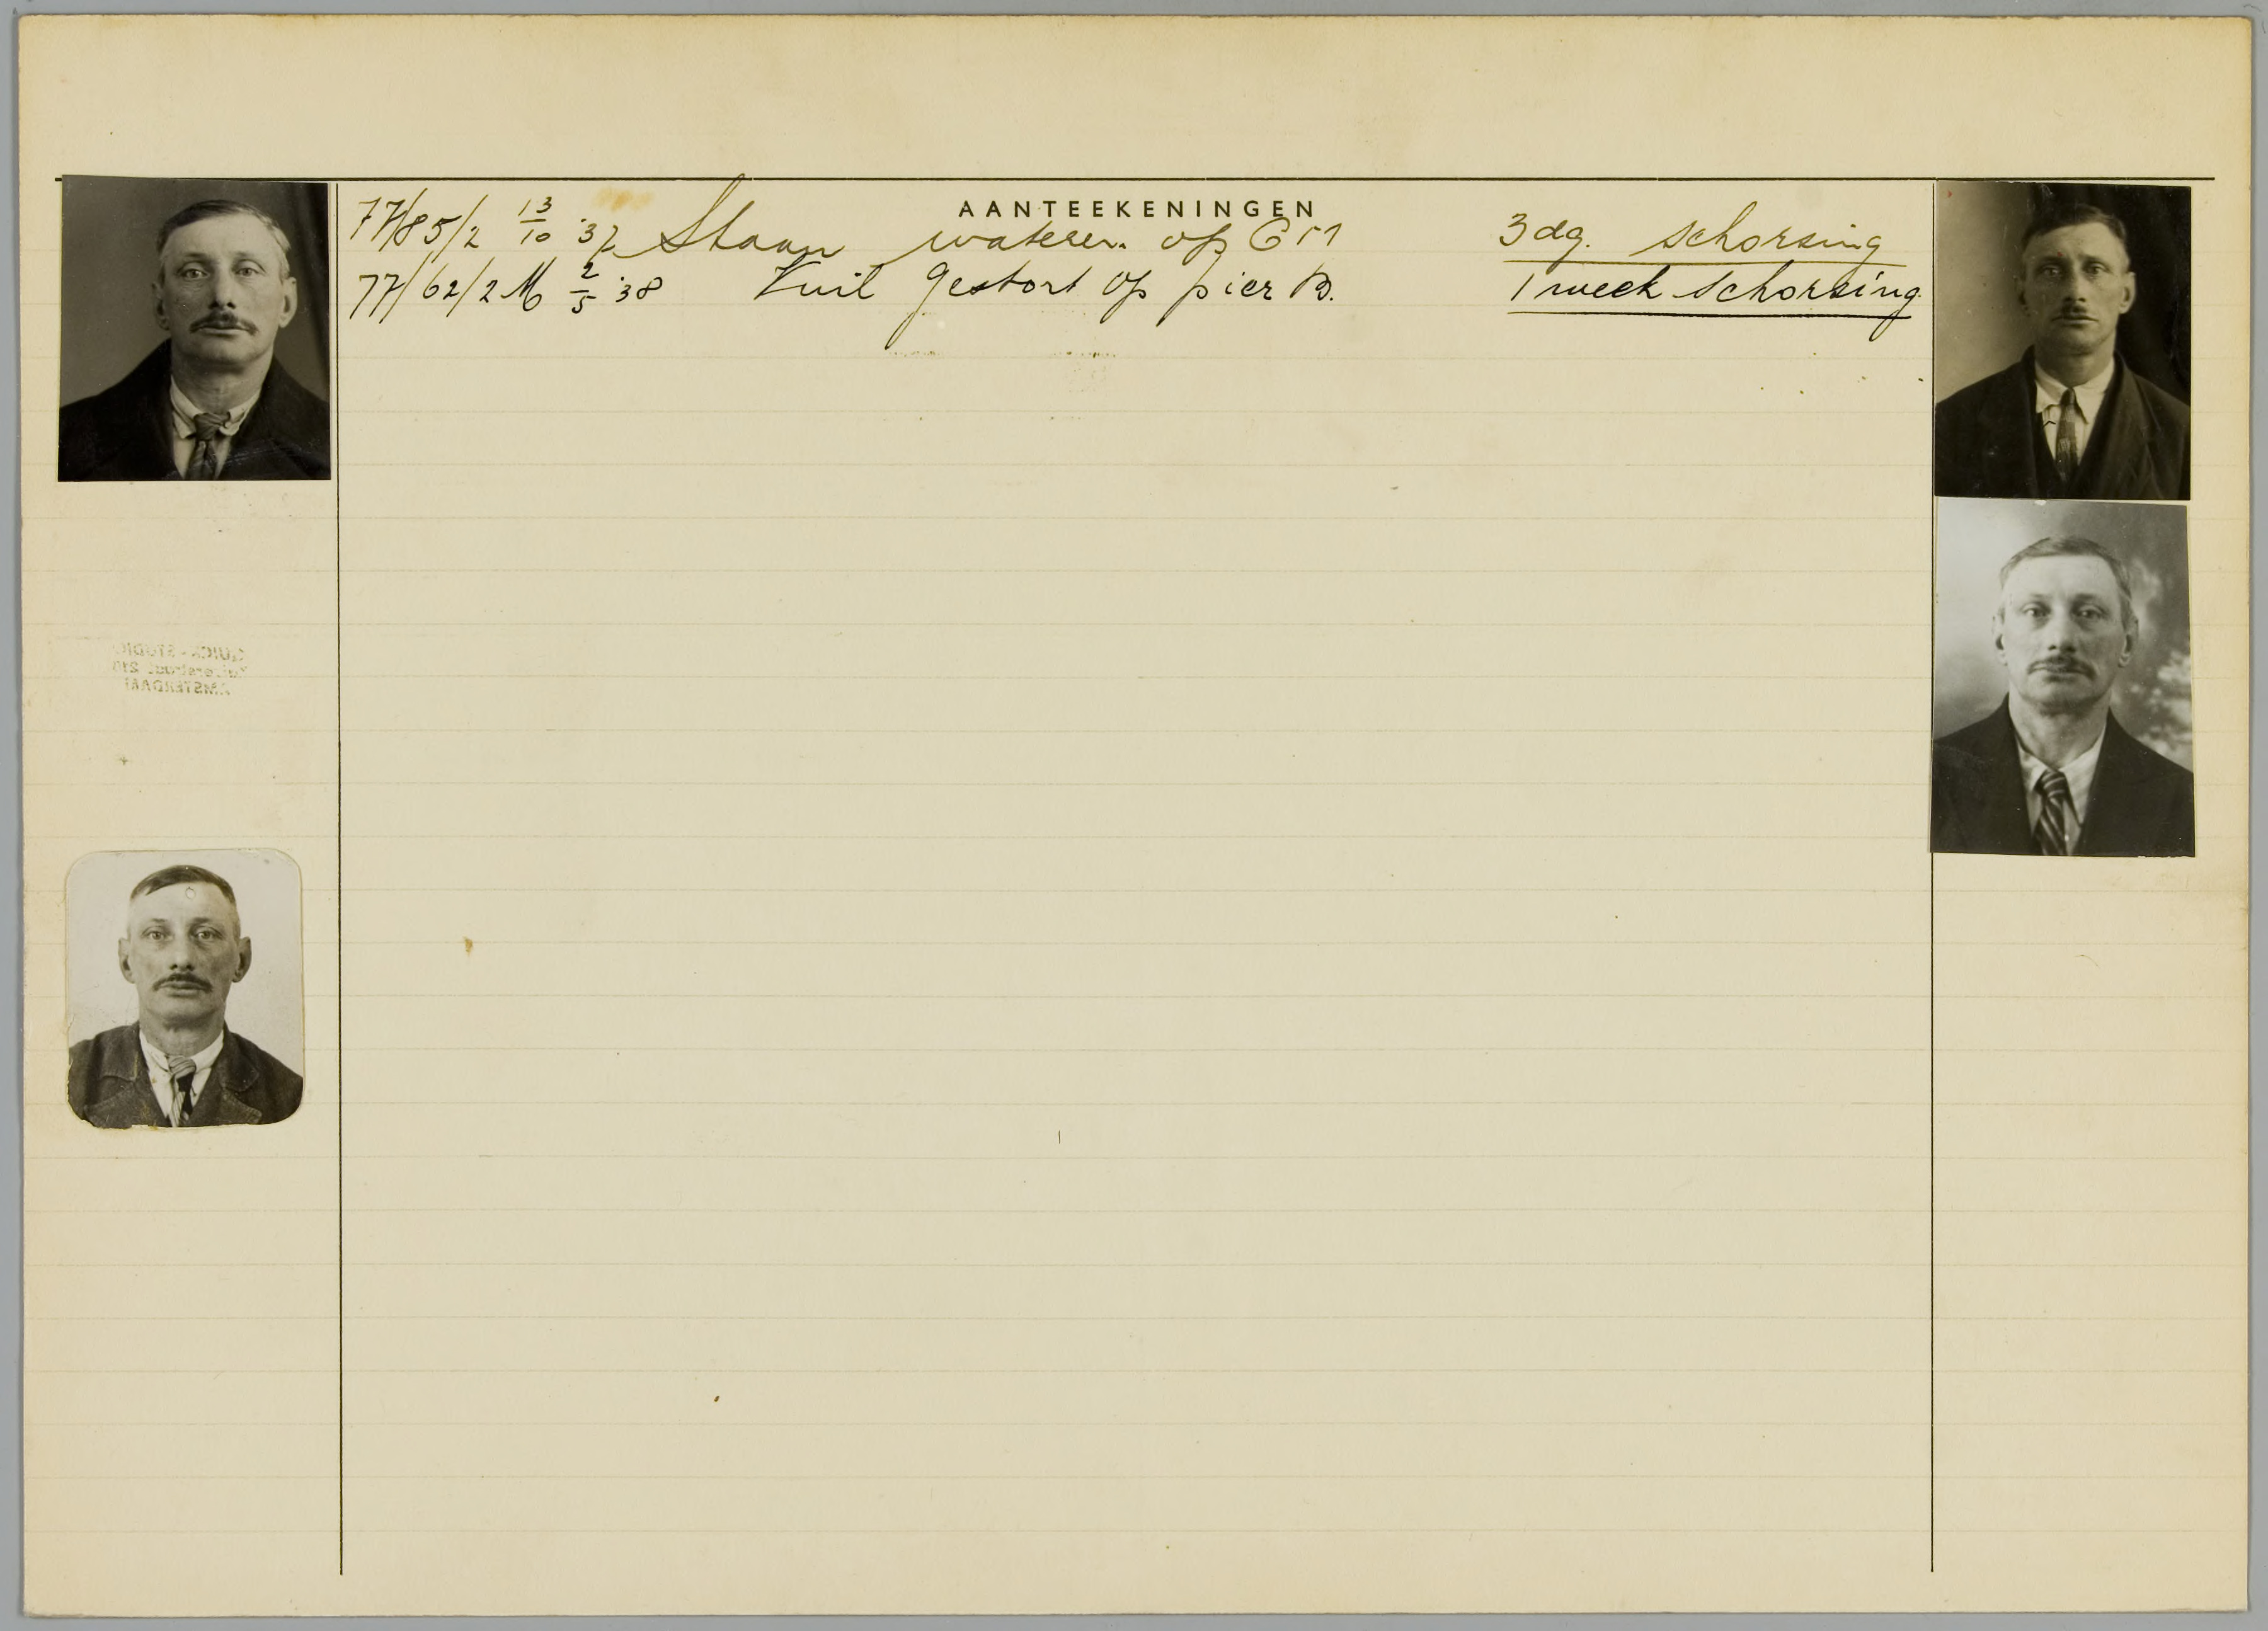 AANTEEKENINGEN
77/85/2 13/10 '37 Staan wateren op CM 3 dg. schorsing
77/62/2 M 2/5 '38 Vuil gestort op pier B. 1 week schorsing
QUICK-STUDIO
AMSTERDAM